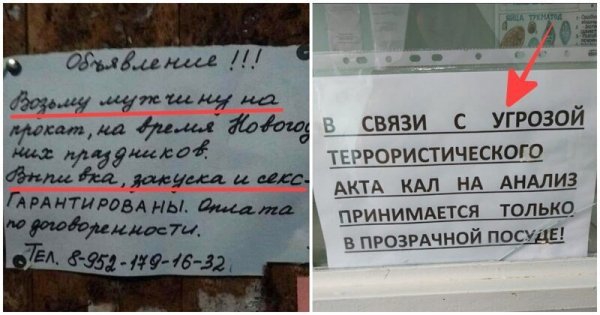 Объявление !!!
Возьму мужчину на
прокат, на время Новогод
них праздников.
Выпивка, закуска и секс-
ГАРАНТИРОВАНЫ. Оплата
по договоренности.
Тел. 8-952-179-16-32
ЯЙЦА ТРЕМАТОД
В СВЯЗИ С УГРОЗОЙ
ТЕРРОРИСТИЧЕСКОГО
АКТА КАЛ НА АНАЛИЗ
ПРИНИМАЕТСЯ ТОЛЬКО
В ПРОЗРАЧНОЙ ПОСУДЕ!